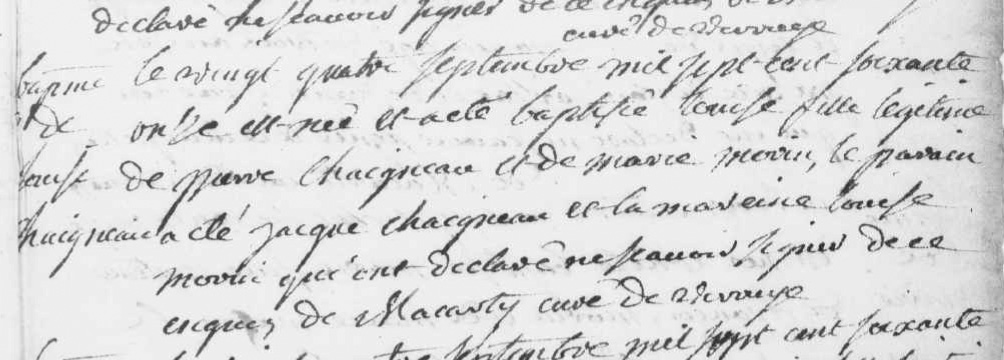 declaré ne scavoir signer de ce enquis de
curé de verruye
baptme le vingt quatre septembre mil sept cent soixante
de onse est neé et a eté baptisée louise fille legitime
louise de pierre chaigneau et de marie morin, le parain
chaigneau a eté jacque chaigneau et la mareine louise
morin qui ont declaré ne scavoir signer de ce
enquis, de Macarty curé de verruye
septembre mil sept cent soixante